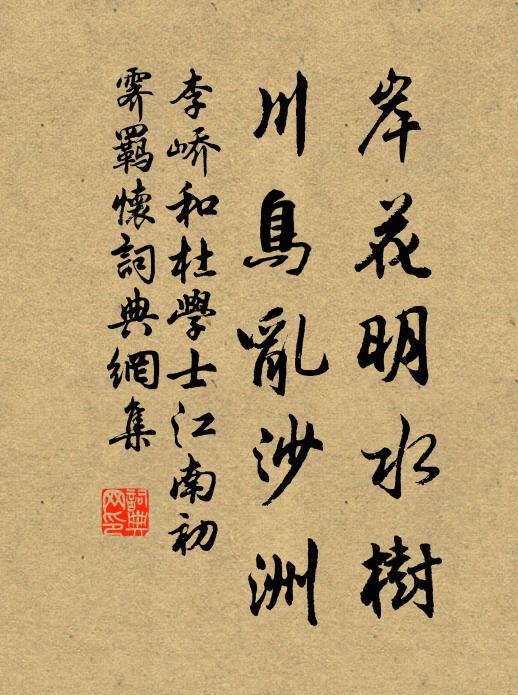 岸花明水樹
川鳥亂沙洲
李嶠和杜學士江南初
霽羈懷詞典網集
詞典網印